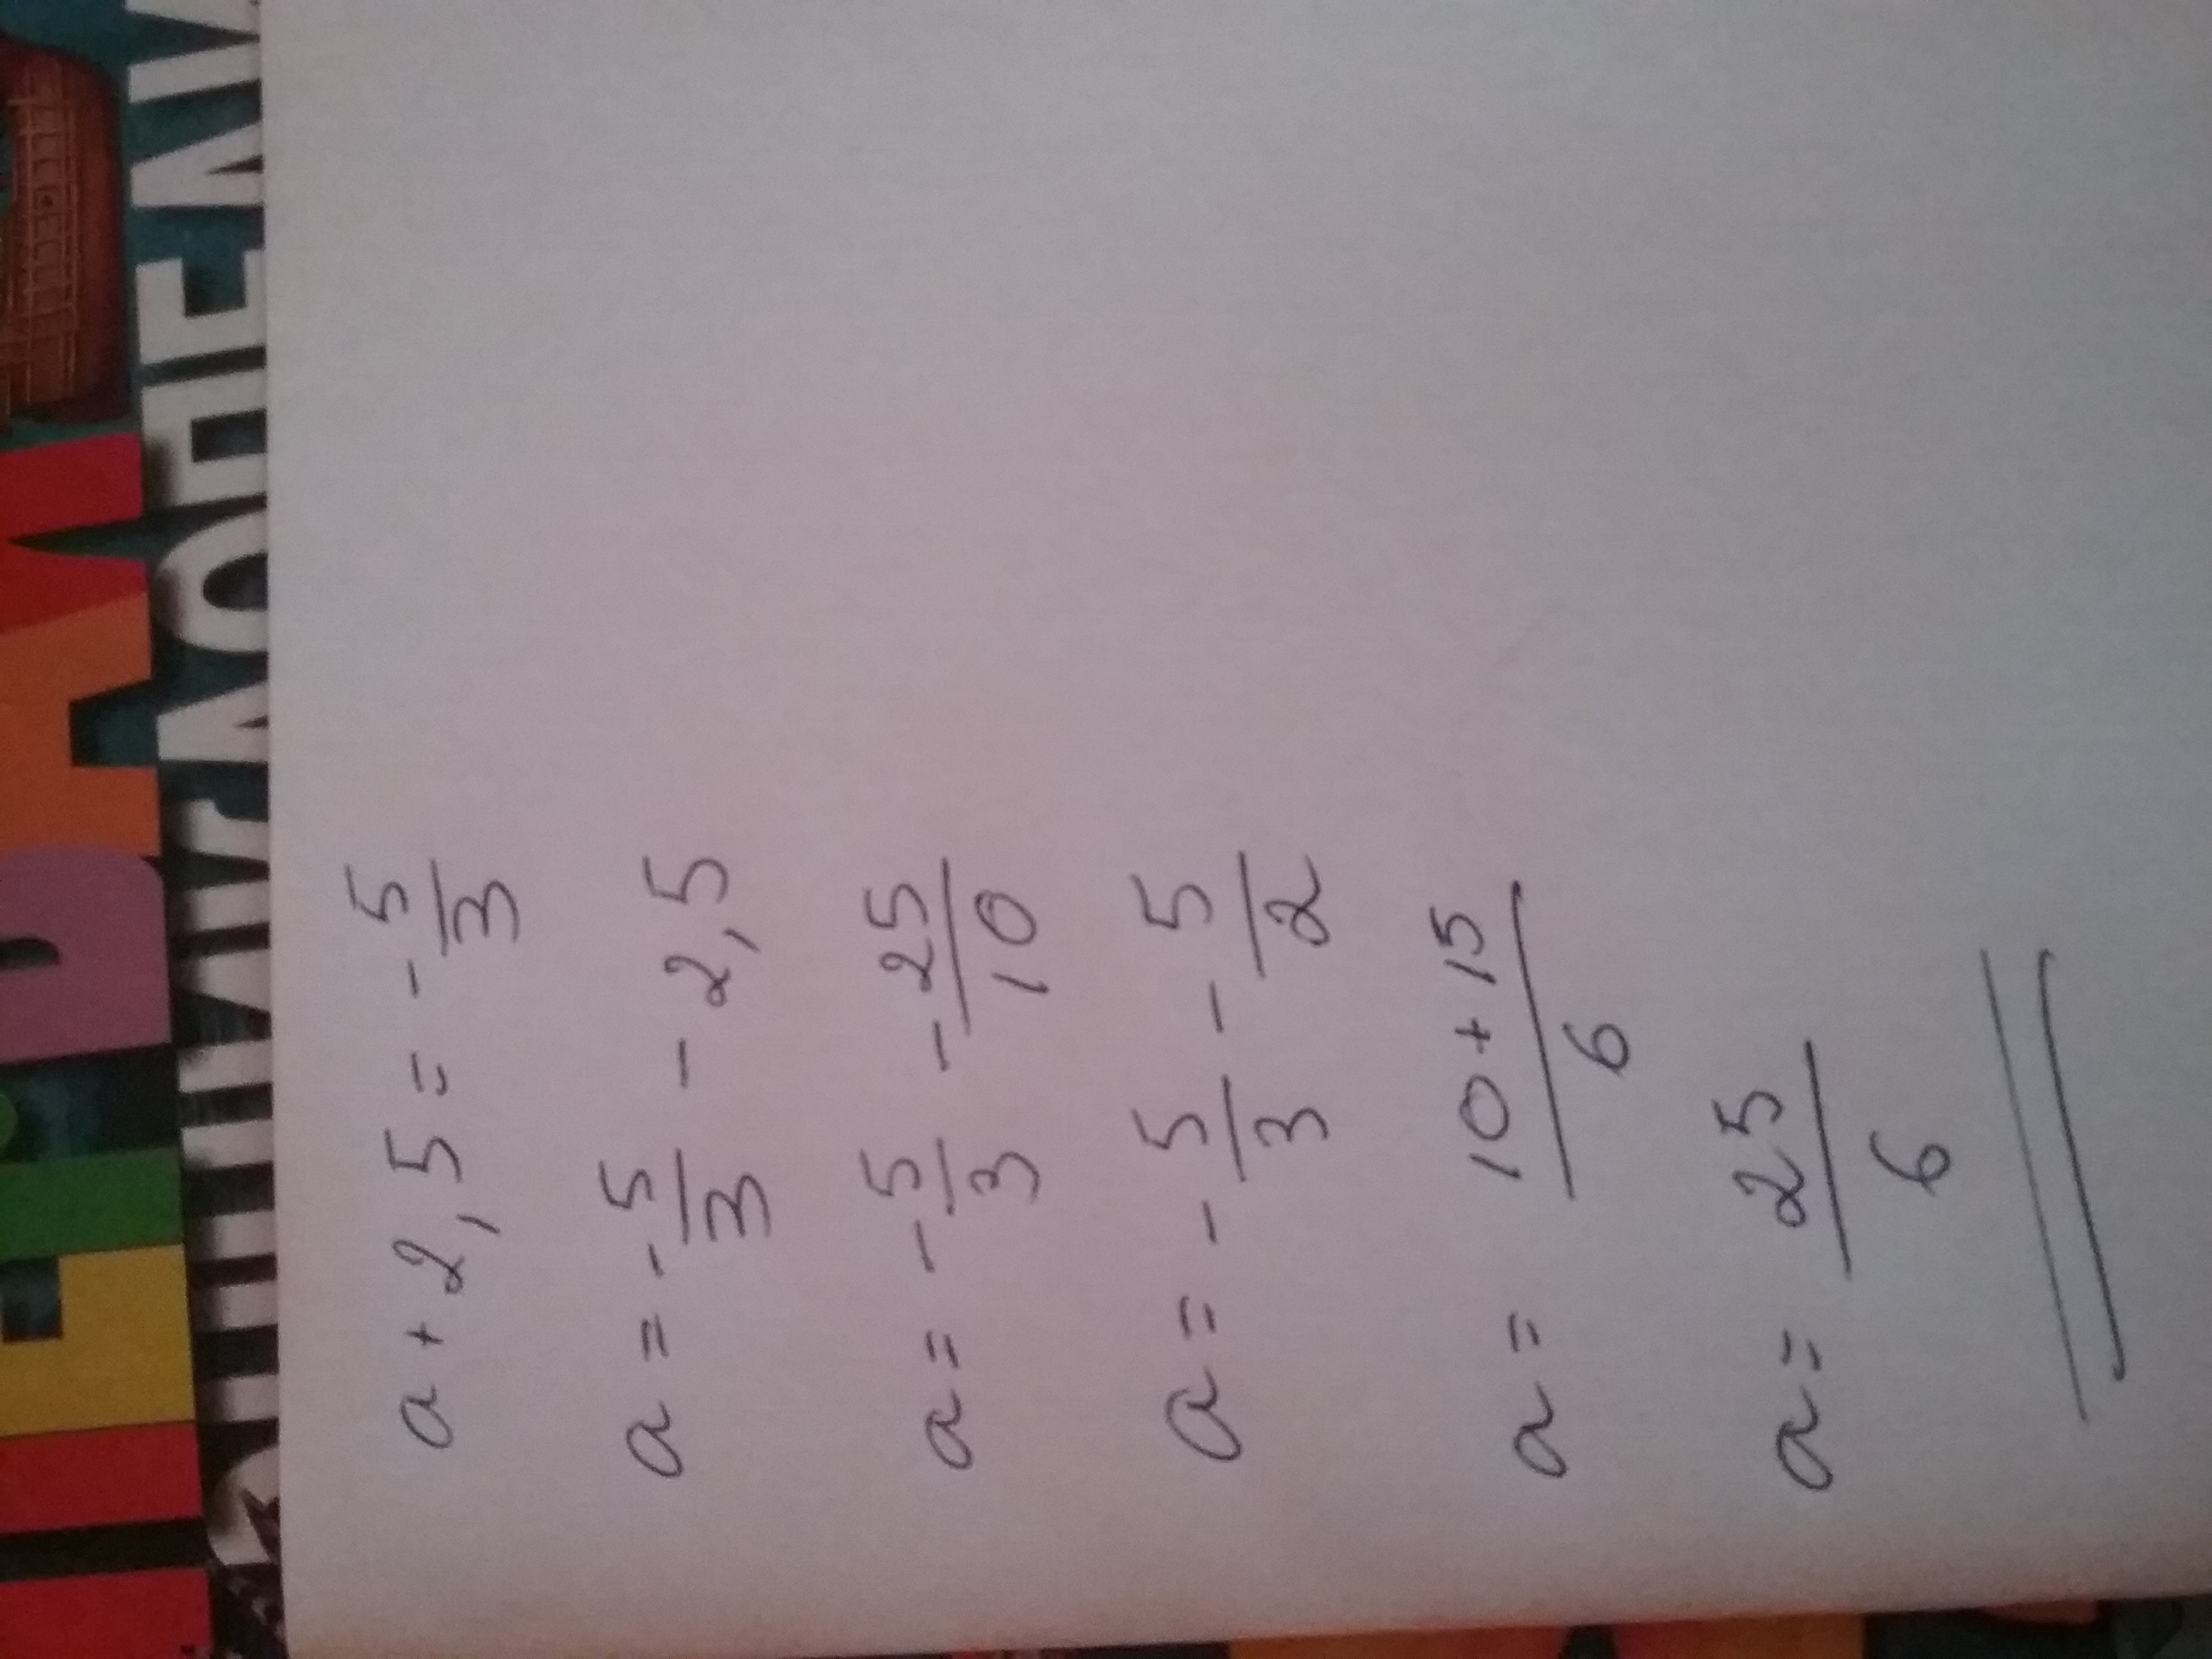 a + 2,5 = - 5/3
a = - 5/3 - 2,5
a = - 5/3 - 25/10
a = - 5/3 - 5/2
a = 10 + 15/6
a = 25/6